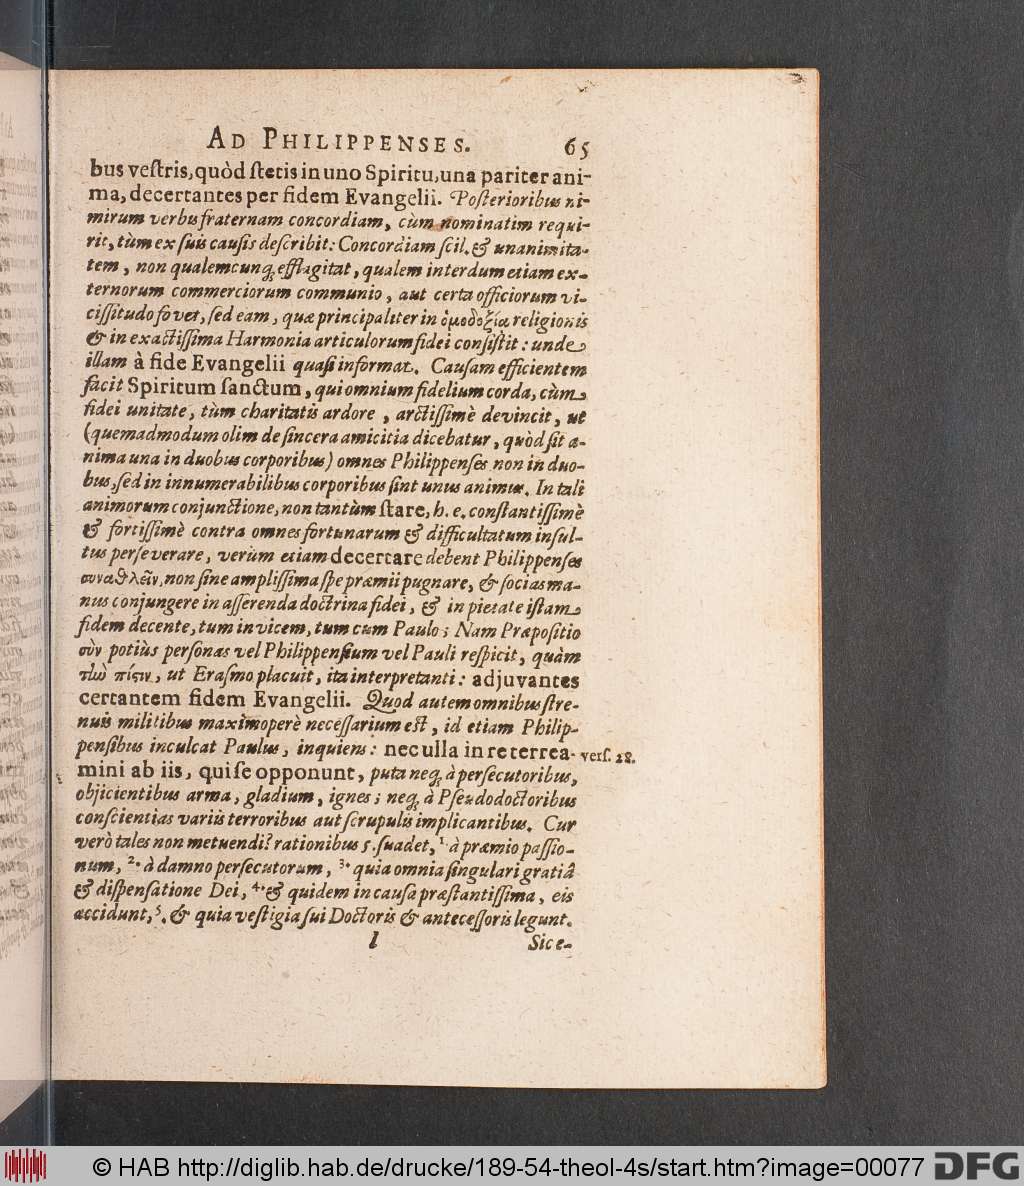 AD PHILIPPENSES. 65
bus vestris, quòd stetis in uno Spiritu, una pariter ani-
ma, decertantes per fidem Evangelii. Posterioribus ni-
mirum verbis fraternam concordiam, cùm nominatim requi-
rit, tùm ex suis causis describit: Concordiam scil. & unanimita-
tem, non qualemcunq; efflagitat, qualem interdum etiam ex-
ternorum commerciorum communio, aut certa officiorum vi-
cissitudo fovet, sed eam, quæ principaliter in ὁμοδοξίᾳ religionis
& in exactissima Harmonia articulorum fidei consistit: unde
illam à fide Evangelii quasi informat. Causam efficientem
facit Spiritum sanctum, qui omnium fidelium corda, cùm
fidei unitate, tùm charitatis ardore, arctissimè devincit, ut
(quemadmodum olim de sincera amicitia dicebatur, quòd sit a-
nima una in duobus corporibus) omnes Philippenses non in duo-
bus, sed in innumerabilibus corporibus sint unus animus. In tali
animorum conjunctione, non tantùm stare, h. e. constantissimè
& fortissimè contra omnes fortunarum & difficultatum insul-
tus perseverare, verùm etiam decertare debent Philippenses
συναθλεῖν, non sine amplissima spe præmii pugnare, & socias ma-
nus conjungere in asserenda doctrina fidei, & in pietate istam
fidem decente, tum invicem, tum cum Paulo; Nam Præpositio
σὺν potiùs personas vel Philippensium vel Pauli respicit, quàm
τὴν πίστιν, ut Erasmo placuit, ita interpretanti: adjuvantes
certantem fidem Evangelii. Quod autem omnibus stre-
nuis militibus maximoperè necessarium est, id etiam Philip-
pensibus inculcat Paulus, inquiens: nec ulla in re terrea- vers. 28.
mini ab iis, qui se opponunt, puta neq; à persecutoribus,
objicientibus arma, gladium, ignes; neq; à Pseudodoctoribus
conscientias variis terroribus aut scrupulis implicantibus. Cur
verò tales non metuendi? rationibus 5. suadet, 1. à præmio passio-
num, 2. à damno persecutorum, 3. quia omnia singulari gratiâ
& dispensatione Dei, 4. & quidem in causa præstantissima, eis
accidunt, 5. & quia vestigia sui Doctoris & antecessoris legunt.
l Sic e-
© HAB http://diglib.hab.de/drucke/189-54-theol-4s/start.htm?image=00077 DFG